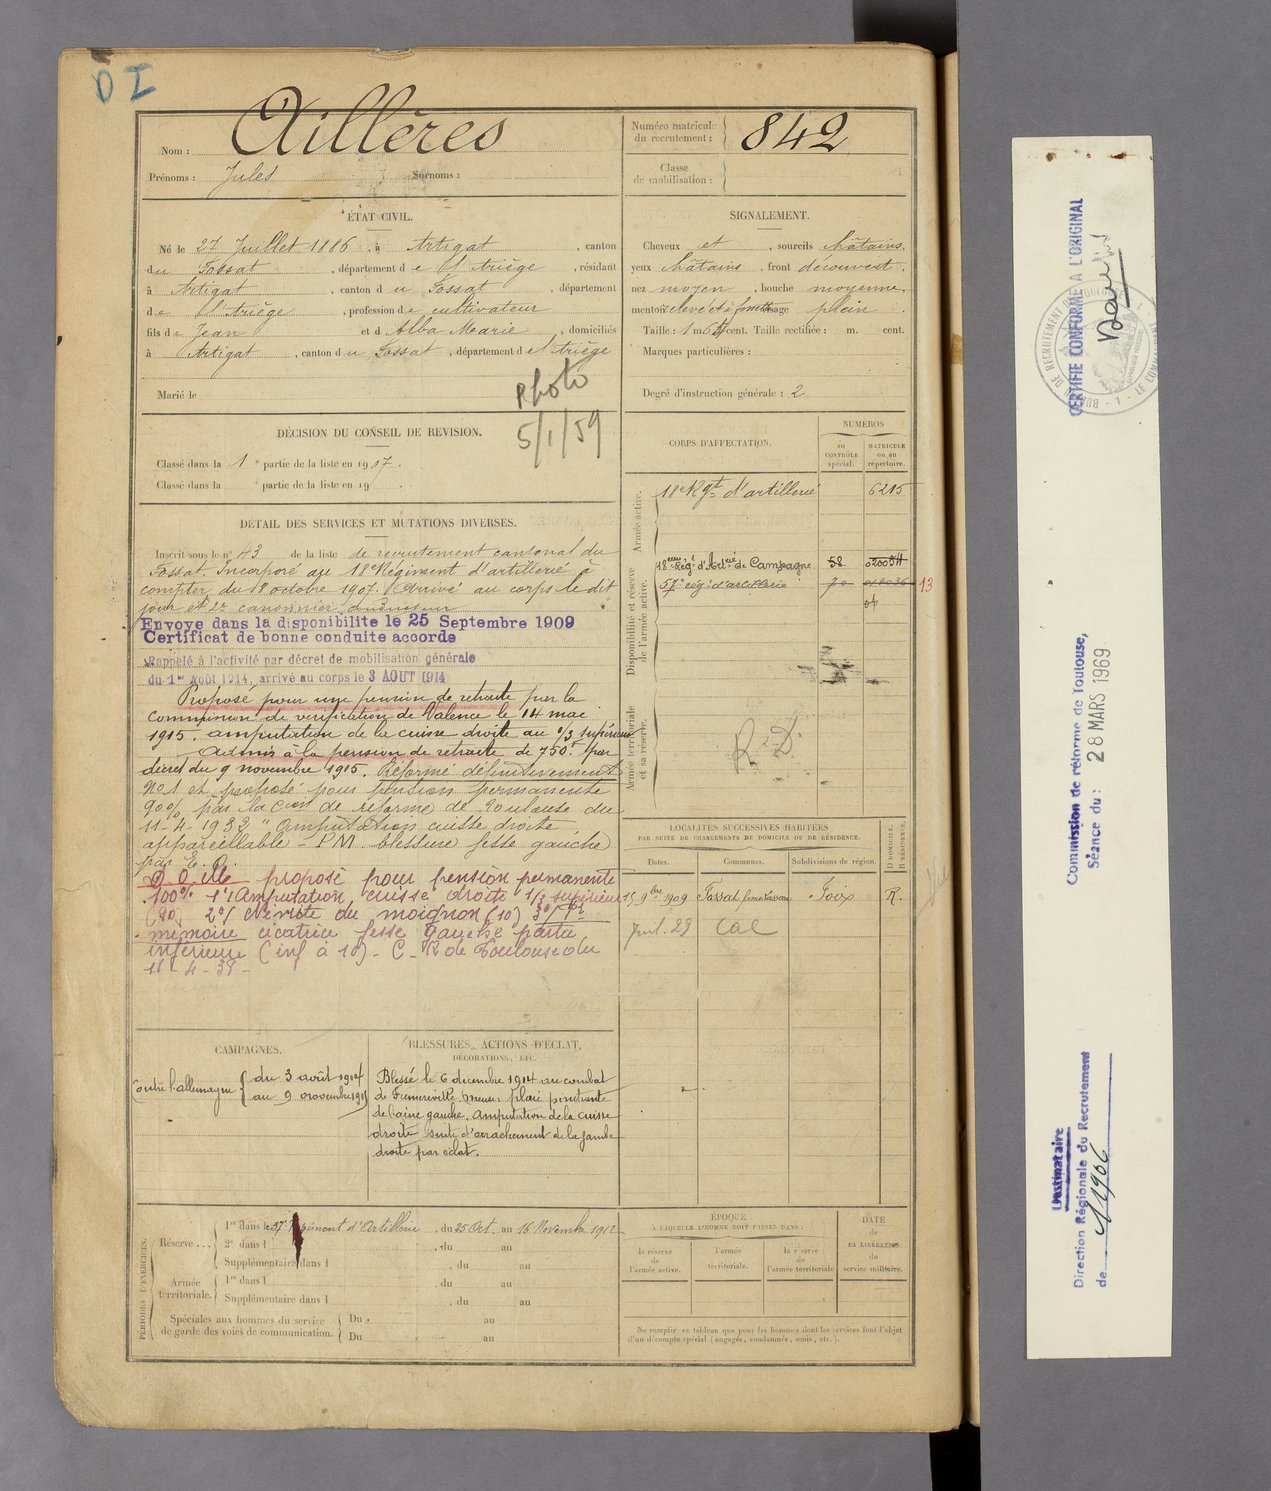 D I
Nom : Aillères
Prénoms : Jules Surnoms :
Numéro matricule du recrutement : 842
Classe de mobilisation :
ÉTAT CIVIL.
Né le 27 Juillet 1886, à Artigat, canton
du Fossat, département de l'Ariège, résidant
à Artigat, canton du Fossat, département
de l'Ariège, profession de cultivateur
fils de Jean et d Alba Marie, domiciliés
à Artigat, canton du Fossat, département de l'Ariège
Marié le
Photo
5/1/59
SIGNALEMENT.
Cheveux et , sourcils châtains,
yeux châtains, front découvert,
nez moyen, bouche moyenne,
menton relevé et à fossette visage plein.
Taille : 1 m. 64 cent. Taille rectifiée : m. cent.
Marques particulières :
Degré d'instruction générale : 2
DÉCISION DU CONSEIL DE REVISION.
Classé dans la 1e partie de la liste en 1907.
Classé dans la e partie de la liste en 19
DÉTAIL DES SERVICES ET MUTATIONS DIVERSES.
Inscrit sous le n° 43 de la liste de recrutement cantonal du
Fossat. Incorporé au 18e Régiment d'artillerie à
compter du 8 octobre 1907. Arrivé au corps le dit
jour et 2e canonnier
Envoye dans la disponibilite le 25 Septembre 1909
Certificat de bonne conduite accorde
Rappelé à l'activité par décret de mobilisation générale
du 1er Août 1914, arrivé au corps le 3 AOUT 1914
Proposé pour une pension de retraite par la
Commission de vérification de Valence le 14 mai
1915. amputation de la cuisse droite au 1/3 supérieur
Admis à la pension de retraite de 750f par
décret du 9 novembre 1915. Réformé définitivement
No 1 et proposé pour pension permanente
90% par la Cion de réforme de Toulouse du
11-4-1932 " Amputation cuisse droite
appareillable - PM. blessure fesse gauche
par E. O.
proposé pour pension permanente
100% 1°/ Amputation cuisse droite 1/3 supérieur
(90) 2°/ Névrite du moignon (10) 3°/ Pr
mémoire cicatrice fesse gauche partie
inférieure (inf à 10) - C. R de Toulouse du
11-4-39-
CORPS D'AFFECTATION.
NUMÉROS
au CONTRÔLE spécial.
MATRICULE ou au répertoire.
Armée active.
18e Rgt d'artillerie 6215
Disponibilité et réserve de l'armée active.
18eme Régt d'Artrie de Campagne 58
57e rég. d'artillerie 70
13
Armée territoriale et sa réserve.
R. D.
LOCALITÉS SUCCESSIVES HABITÉES
PAR SUITE DE CHANGEMENTS DE DOMICILE OU DE RÉSIDENCE.
Dates. Communes. Subdivisions de région. D DOMICILE, R RÉSIDENCE.
15 9bre 1909 Fossat Foix R.
Juil. 29 Cal
CAMPAGNES.
Contre l'allemagne { du 3 août 1914
au 9 novembre 1915
BLESSURES, ACTIONS D'ÉCLAT,
DÉCORATIONS, ETC.
Blessé le 6 décembre 1914 au combat
de Plaie pénétrante
de l'aine gauche. Amputation de la cuisse
droite suite d'arrachement de la jambe
droite par éclat.
PÉRIODES D'EXERCICES.
Réserve ... 1re dans le 57e Régiment d'Artillerie, du 25 Oct. au 16 Novembre 1912
2e dans l , du au
Supplémentaire dans l , du au
Armée territoriale. 1re dans l , du au
Supplémentaire dans l , du au
Spéciales aux hommes du service de garde des voies de communication. Du au
Du au
ÉPOQUE
À LAQUELLE L'HOMME DOIT PASSER DANS :
la réserve de l'armée active.
l'armée territoriale.
la réserve de l'armée territoriale
DATE de LA LIBÉRATION du service militaire.
Ne remplir ce tableau que pour les hommes dont les services font l'objet
d'un décompte spécial (engagés, condamnés, omis, etc.).
CERTIFIE CONFORME A L'ORIGINAL
Commission de réforme de Toulouse,
Séance du : 28 MARS 1969
Destinataire
Direction Régionale du Recrutement
de